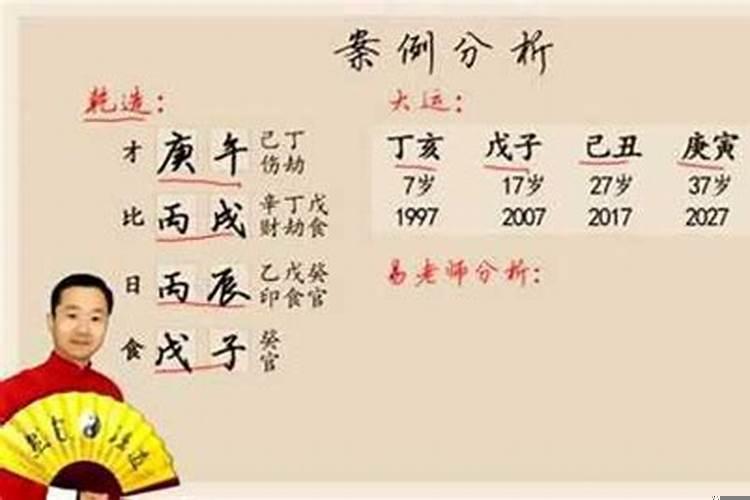 案例分析
乾造：
才 庚午 己丁
伤劫
比 丙戌 辛丁戊
财劫食
日 丙辰 乙戊癸
印食官
食 戊子 癸
官
大运：
丁亥 戊子 己丑 庚寅
7岁 17岁 27岁 37岁
1997 2007 2017 2027
易老师分析：